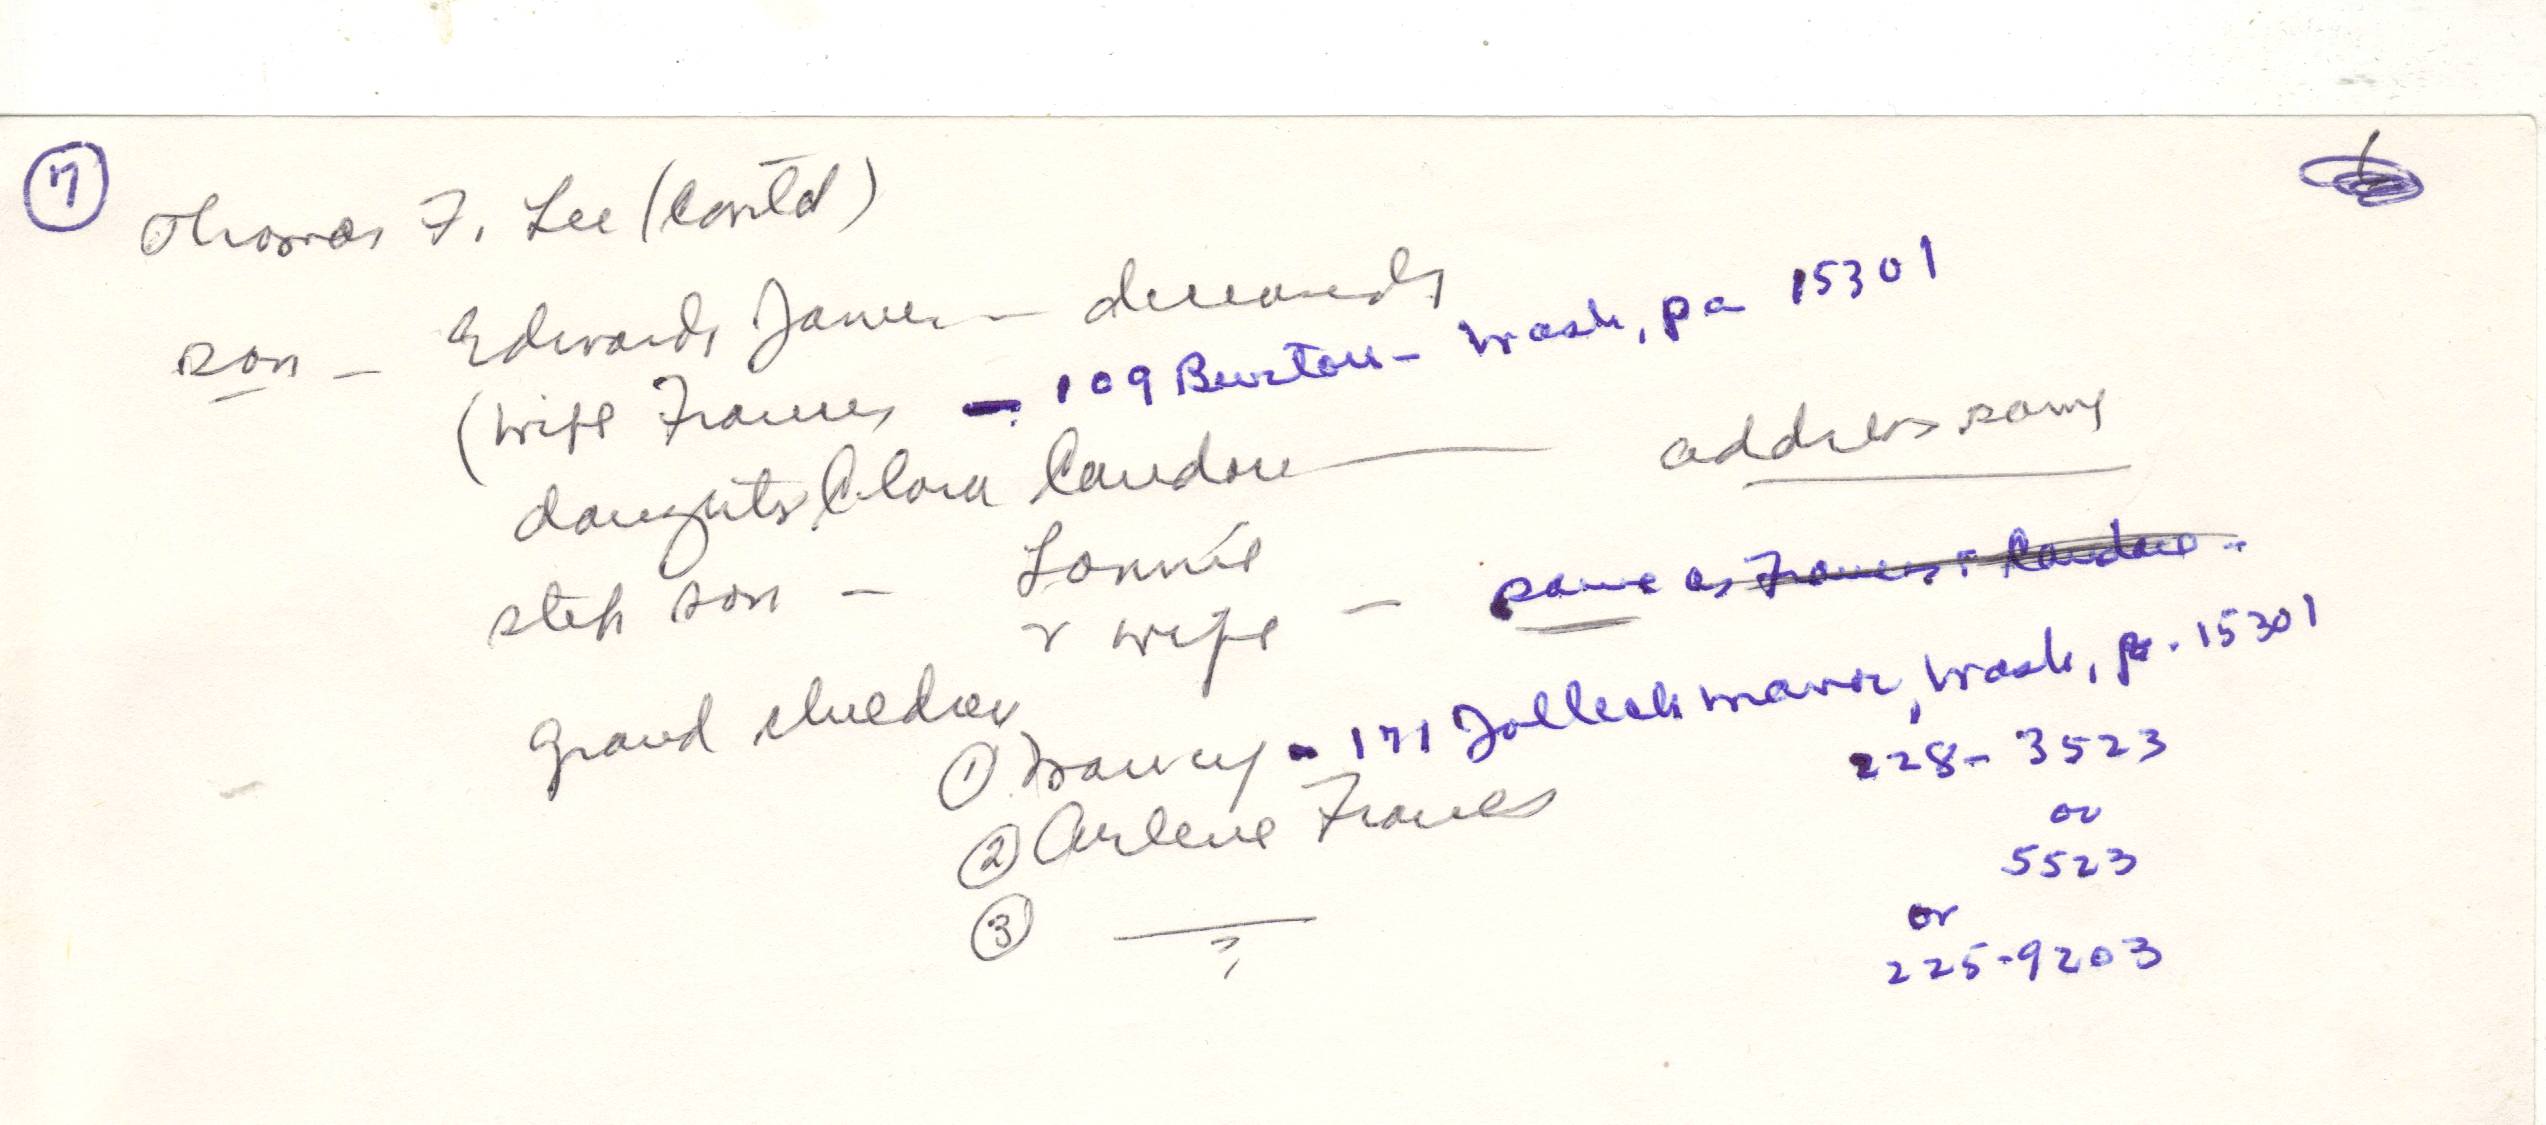 7
Thomas F. Lee (Cont'd)
son - Edward James - deceased
(wife Frances - 109 Burton - Wash, pa 15301
daughter Clara Candace — address same
step son - Lonnie
& wife - same as Frances & Candace -
grand children
① Nancy - 171 Jolleck manor, Wash, pa. 15301
228-3523
② Arlene Frances
or
5523
③ — ?
or
225-9203